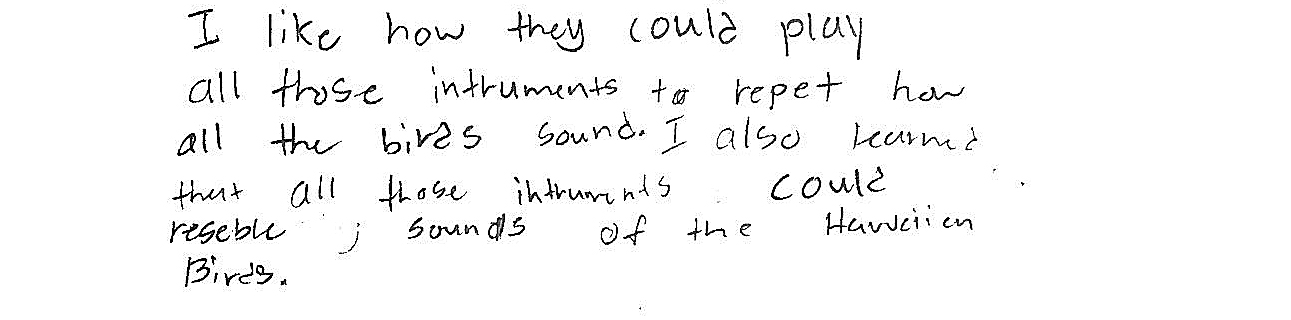 I like how they could play
all those intruments to repet how
all the birds sound. I also learned
that all those intruments could
reseble ; sounds of the Hawaiien
Birds.